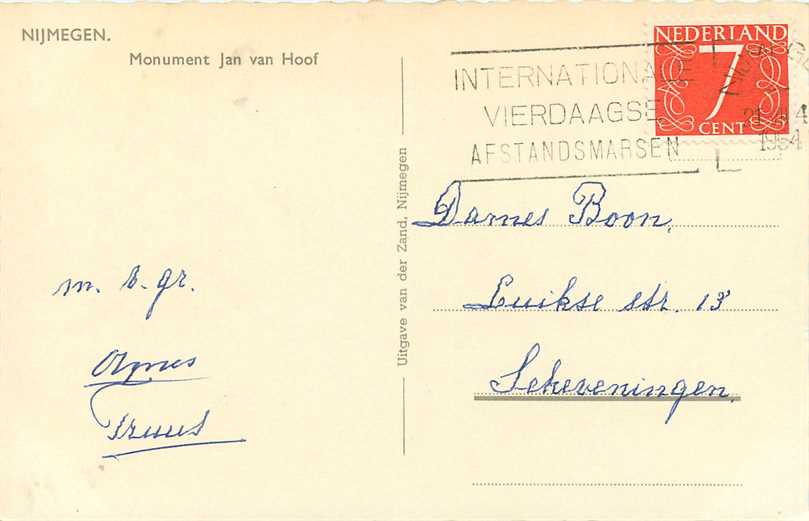 NIJMEGEN.
Monument Jan van Hoof
NEDERLAND
7
CENT
INTERNATIONALE
VIERDAAGSE
AFSTANDSMARSEN
1954
Uitgave van der Zand, Nijmegen
Dames Boon,
Luikse str. 13
Scheveningen.
m. b. gr.
Truus